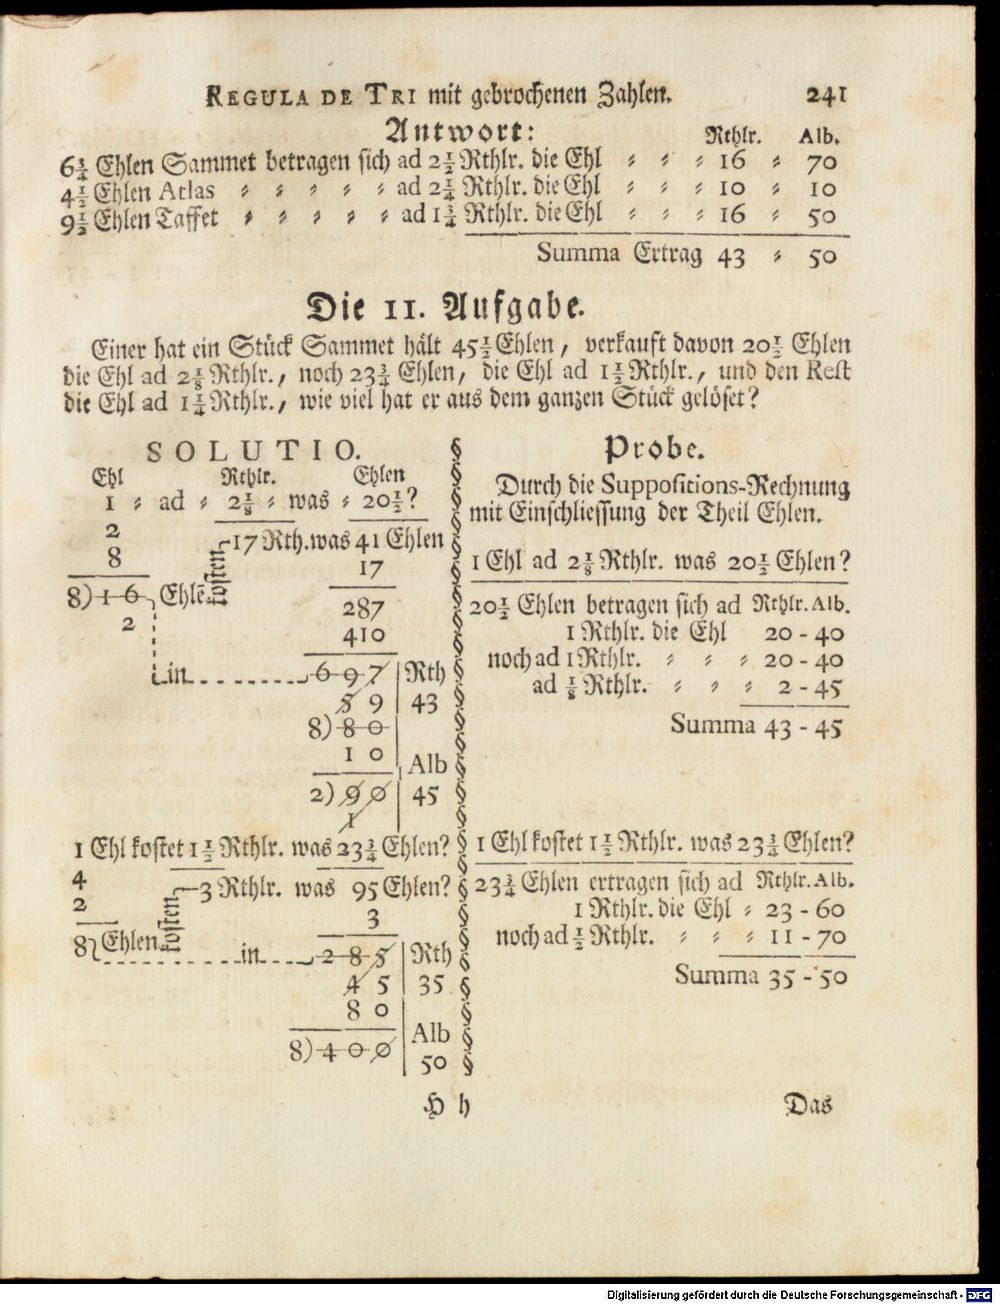 REGULA DE TRI mit gebrochenen Zahlen. 241
Antwort: Rthlr. Alb.
6¾ Ehlen Sammet betragen sich ad 2½ Rthlr. die Ehl ⸗ ⸗ ⸗ 16 ⸗ 70
4½ Ehlen Atlas ⸗ ⸗ ⸗ ⸗ ⸗ ad 2¼ Rthlr. die Ehl ⸗ ⸗ ⸗ 10 ⸗ 10
9½ Ehlen Taffet ⸗ ⸗ ⸗ ⸗ ⸗ ad 1¾ Rthlr. die Ehl ⸗ ⸗ ⸗ 16 ⸗ 50
Summa Ertrag 43 ⸗ 50
Die 11. Aufgabe.
Einer hat ein Stück Sammet hält 45½ Ehlen, verkauft davon 20½ Ehlen
die Ehl ad 2⅛ Rthlr., noch 23¾ Ehlen, die Ehl ad 1½ Rthlr., und den Rest
die Ehl ad 1¼ Rthlr., wie viel hat er aus dem ganzen Stück gelöset?
SOLUTIO.
Ehl Rthlr. Ehlen
1 ⸗ ad ⸗ 2⅛ ⸗ was ⸗ 20½?
2 17 Rth. was 41 Ehlen
8 kosten 17
8) 16 Ehlē 287
2 410
in 697 Rth
59 43
8) 80
10 Alb
2) 90 45
1
1 Ehl kostet 1½ Rthlr. was 23¾ Ehlen?
4 3 Rthlr. was 95 Ehlen?
2 kosten 3
8 Ehlen in 285 Rth
45 35
80 Alb
8) 400
50
Probe.
Durch die Suppositions-Rechnung
mit Einschliessung der Theil Ehlen.
1 Ehl ad 2⅛ Rthlr. was 20½ Ehlen?
20½ Ehlen betragen sich ad Rthlr. Alb.
1 Rthlr. die Ehl 20 - 40
noch ad 1 Rthlr. ⸗ ⸗ ⸗ 20 - 40
ad ⅛ Rthlr. ⸗ ⸗ ⸗ 2 - 45
Summa 43 - 45
1 Ehl kostet 1½ Rthlr. was 23¾ Ehlen?
23¾ Ehlen ertragen sich ad Rthlr. Alb.
1 Rthlr. die Ehl ⸗ 23 - 60
noch ad ½ Rthlr. ⸗ ⸗ ⸗ 11 - 70
Summa 35 - 50
H h Das
Digitalisierung gefördert durch die Deutsche Forschungsgemeinschaft - DFG